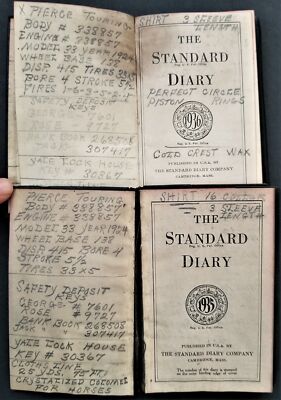 X PIERCE TOURING
BODY # 338857
ENGINE # 338857
MODEL 33 YEAR 1924
WHEEL BASE 138
DISP. 415 TIRES 35X5
BORE 4 STROKE 5½
FIRES 1-6-3-5-2-4
SAFETY DEPOSIT
KEYS
GEORGE # 7601
ROSE # 9727
BANK BOOK 268508
307417
YALE LOCK HOUSE
KEY # 30367
SHIRT 3 SLEEVE
LENGTH
THE
STANDARD
Reg. U. S. Pat. Office
DIARY
PERFECT CIRCLE
PISTON RINGS
1936
Reg. U. S. Pat. Office
COLD CREST WAX
PUBLISHED IN U.S.A. BY
THE STANDARD DIARY COMPANY
CAMBRIDGE, MASS.
PIERCE TOURING
BODY # 338857
ENGINE # 338857
MODEL 33 YEAR 1924
WHEEL BASE 138
DISP 415 BORE 4
STROKE 5½
TIRES 35X5
SAFETY DEPOSIT
KEYS
GEORGE # 7601
ROSE # 9727
BANK BOOK 268508
307417
YALE LOCK HOUSE
KEY # 30367
CLOTHS LINE
25 YDS. 75 FT.
FOR HORSES
SHIRT 16
3 SLEEVE
LENGTH
THE
STANDARD
Reg. U. S. Pat. Office
DIARY
1935
Reg. U. S. Pat. Office
PUBLISHED IN U.S.A. BY
THE STANDARD DIARY COMPANY
CAMBRIDGE, MASS.
The number of this diary is stamped on
the outer binding edge of cover